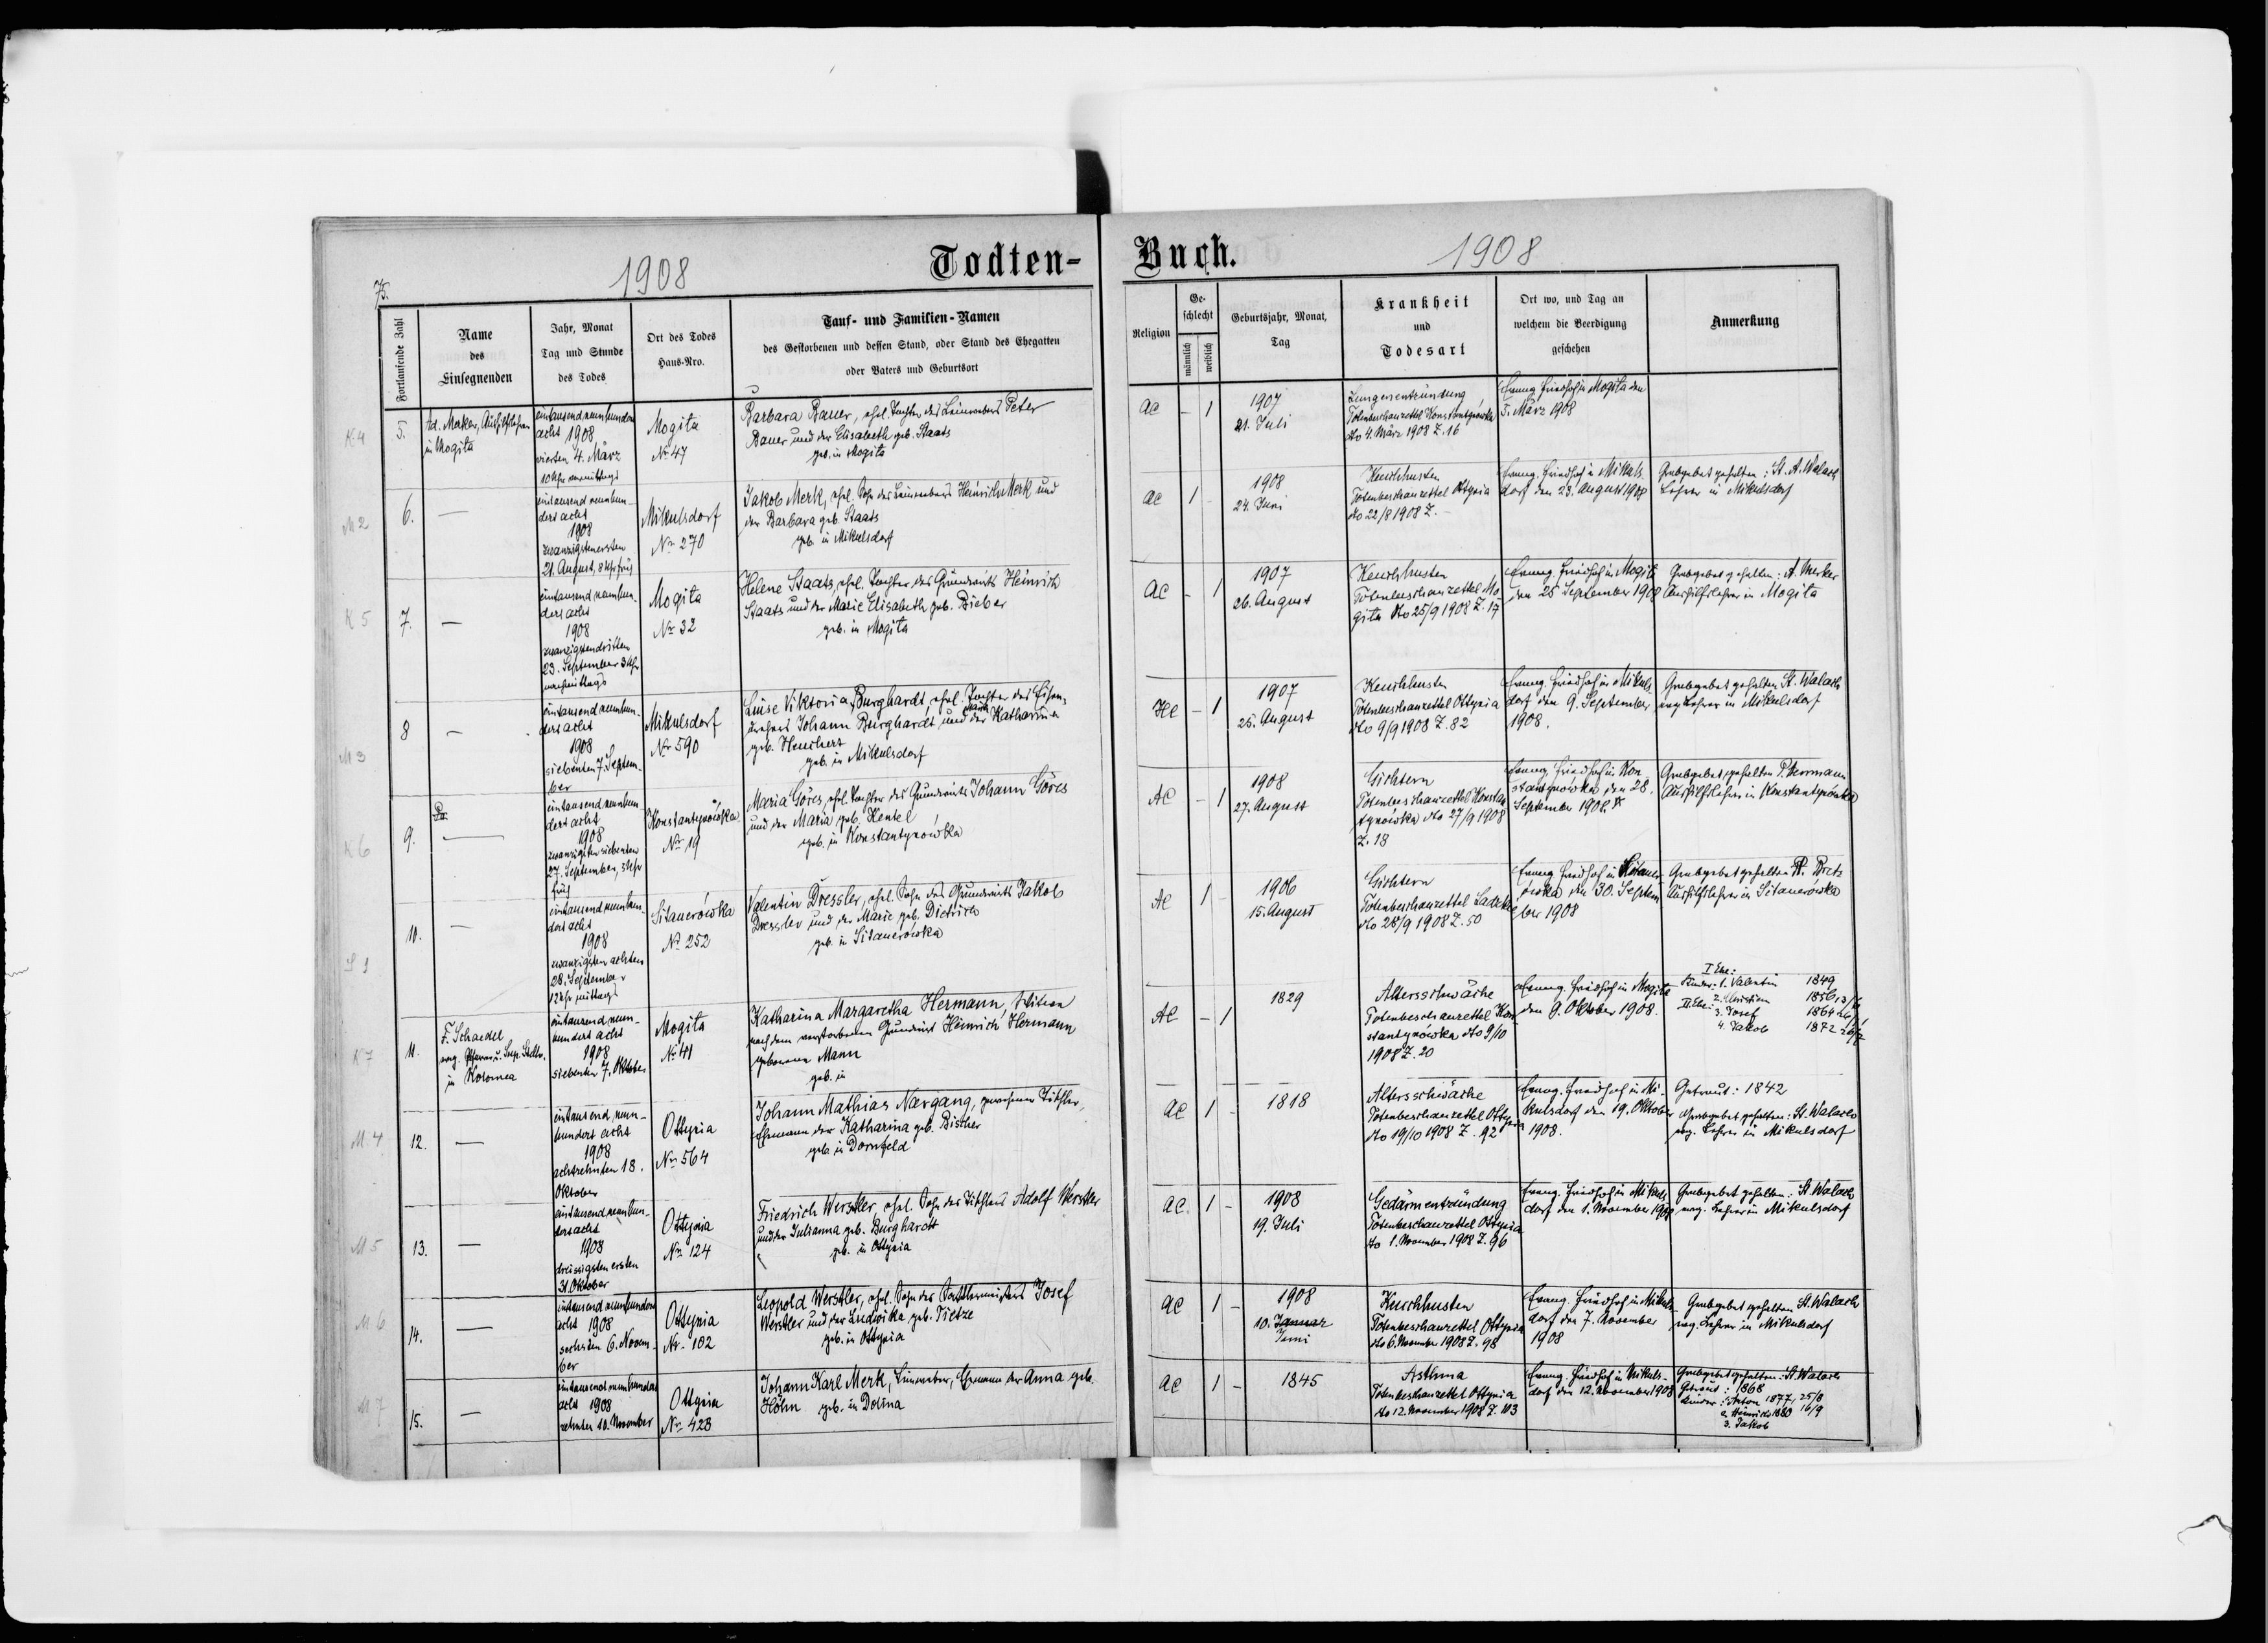 75.
1908
Todten-
Buch.
1908
Fortlaufende Zahl
Name
des
Einsegnenden
Jahr, Monat
Tag und Stunde
des Todes
Ort des Todes
Haus-Nro.
Tauf- und Familien-Namen
des Gestorbenen und dessen Stand, oder Stand des Ehegatten
oder Vaters und Geburtsort
Religion
Ge-
schlecht
männlich
weiblich
Geburtsjahr, Monat,
Tag
Krankheit
und
Todesart
Ort wo, und Tag an
welchem die Beerdigung
geschehen
Anmerkung
K 4
5.
Ad. Merker, Aushilfslehrer
in Mogita
eintausend neunhundert
acht 1908
vierten 4. März
10 Uhr vormittags
Mogita
Nr 47
Barbara Bauer, ehel. Tochter des Leinwebers Peter
Bauer und der Elisabeth geb. Staats
geb. in Mogita
AC
- 1
1907
21. Juli
Lungenentzündung
Totenbeschauzettel Konstantynówka
dto 4. März 1908 Z. 16
Evang. Friedhof in Mogita den
5. März 1908
M 2
6.
—
eintausend neunhun-
dert acht
1908
zwanzigstenersten
21. August, 8 Uhr früh
Mikulsdorf
Nr 270
Jakob Merk, ehel. Sohn des Leinwebers Heinrich Merk und
der Barbara geb. Staats
geb. in Mikulsdorf
AC
1 -
1908
24. Juni
Keuchhusten
Totenbeschauzettel Ottynia
dto 22/8 1908 Z. -
Evang. Friedhof in Mikuls-
dorf den 23. August 1908
Grabgebet gehalten: St. A. Walach
Lehrer in Mikulsdorf
K 5
7.
—
eintausend neunhun-
dert acht
1908
zwanzigstendritten
23. September 3 Uhr
nachmittags
Mogita
Nr 32
Helene Staats, ehel. Tochter des Grundwirts Heinrich
Staats und der Marie Elisabeth geb. Bieber
geb. in Mogita
AC
- 1
1907
26. August
Keuchhusten
Totenbeschauzettel Mo
gita dto 25/9 1908 Z. 17
Evang. Friedhof in Mogita
den 25 September 1908
Grabgebet gehalten: A. Merker
Aushilfslehrer in Mogita
M 3
8
—
eintausend neunhun-
dert acht
1908
siebenten 7. Septem-
ber
Mikulsdorf
Nr 590
Luise Viktoria Burghardt, ehel. Tochter des Eisen-
drehers Johann Burghardt und der Katharina
geb. Heuchert
geb. in Mikulsdorf
HC
- 1
1907
25. August
Keuchhusten
Totenbeschauzettel Ottynia
dto 9/9 1908 Z. 82
Evang. Friedhof in Mikuls
dorf den 9. September
1908.
Grabgebet gehalten St. Walach
evg Lehrer in Mikulsdorf
K 6
9.
—
eintausend neunhun
dert acht
1908
zwanzigsten siebenten
27. September, 5 Uhr
früh
Konstantynówka
Nr 19
Maria Göres, ehel. Tochter des Grundwirts Johann Göres
und der Maria geb. Henkel
geb. in Konstantynówka
AC
- 1
1908
27. August
Gichtern
Totenbeschauzettel Konstan
tynówka dto 27/9 1908
Z. 18
Evang. Friedhof in Kon
stantynówka den 28.
September 1908.
Grabgebet gehalten P. Herrmann
Aushilfslehrer in Konstantynówka
10.
—
eintausend neunhun-
dert acht
1908
zwanzigsten achten
28. September
12 Uhr mittags
Sitauerówka
Nr 252
Valentin Dressler, ehel. Sohn des Grundwirts Jakob
Dressler und der Marie geb. Dietrich
geb. in Sitauerówka
AC
1 -
1906
15. August
Gichtern
Totenbeschauzettel
dto 28/9 1908 Z. 50
Evang. Friedhof in Sitauer
ówka den 30. Septem
ber 1908
Grabgebet gehalten
Aushilfslehrer in Sitauerówka
K 7
11.
F. Schaedel
evg. Pfarrer u. Sup. Stellv.
in Kolomea
eintausend neun-
hundert acht
1908
siebenten 7. Oktober
Mogita
Nr 41
Katharina Margaretha Hermann, Witwe
nach dem verstorbenen Grundwirt Heinrich Hermann
geborene Mann
geb. in
AC
- 1
1829
Altersschwäche
Totenbeschauzettel Kon
stantynówka dto 9/10
1908 Z. 20
Evang. Friedhof in Mogita
den 9. Oktober 1908.
I Ehe:
Kinder: 1. Valentin 1849
2. Christian 1856 13/6
II Ehe: 3. Josef 1864 26/1
4. Jakob 1872
M 4
12.
—
eintausend, neun-
hundert acht
1908
achtzehnten 18.
Oktober
Ottynia
Nr 564
Johann Mathias Nærgang, gewesener Tischler,
Ehemann der Katharina geb. Bischer
geb. in Dornfeld
AC
1 -
1818
Altersschwäche
Totenbeschauzettel Ottynia
dto 19/10 1908 Z. 92
Evang. Friedhof in Mi-
kulsdorf den 19. Oktober
1908.
Getraut: 1842
Grabgebet gehalten: St. Walach
evg. Lehrer in Mikulsdorf
M 5
13.
—
eintausend neunhun-
dert acht
1908
dreissigsten ersten
31. Oktober
Ottynia
Nr 124
Friedrich Werstler, ehel. Sohn des Tischlers Adolf Werstler
und der Julianna geb. Burghardt
geb. in Ottynia
AC.
1 -
1908
19. Juli
Gedärmentzündung
Totenbeschauzettel Ottynia
dto 1. November 1908 Z. 96
Evang. Friedhof in Mikuls
dorf den 1. November 1908
Grabgebet gehalten: St. Walach
evg. Lehrer in Mikulsdorf
M 6
14.
—
eintausend neunhundert
acht 1908
sechsten 6. Novem-
ber
Ottynia
Nr. 102
Leopold Werstler, ehel. Sohn des Sattlermeisters Josef
Werstler und der Ludwika geb. Tietze
geb. in Ottynia
AC
1 -
1908
10. Januar
Juni
Keuchhusten
Totenbeschauzettel Ottynia
dto 6. November 1908 Z. 98
Evang. Friedhof in Mikuls-
dorf den 7. November
1908
Grabgebet gehalten St. Walach
evg. Lehrer in Mikulsdorf
M 7
15.
—
eintausend neunhundert
acht 1908
zehnten 10. November
Ottynia
Nr. 423
Johann Karl Merk, Leinweber, Ehemann der Anna geb.
Höhn geb. in Dolina
AC
1 -
1845
Asthma
Totenbeschauzettel Ottynia
dto 12. November 1908 Z. 103
Evang. Friedhof in Mikuls-
dorf den 12. November 1908
Grabgebet gehalten: St. Walach
Getraut: 1868
Kinder: 1. Anton 1877, 25/8
2. Heinrich 1880 16/9
3. Jakob